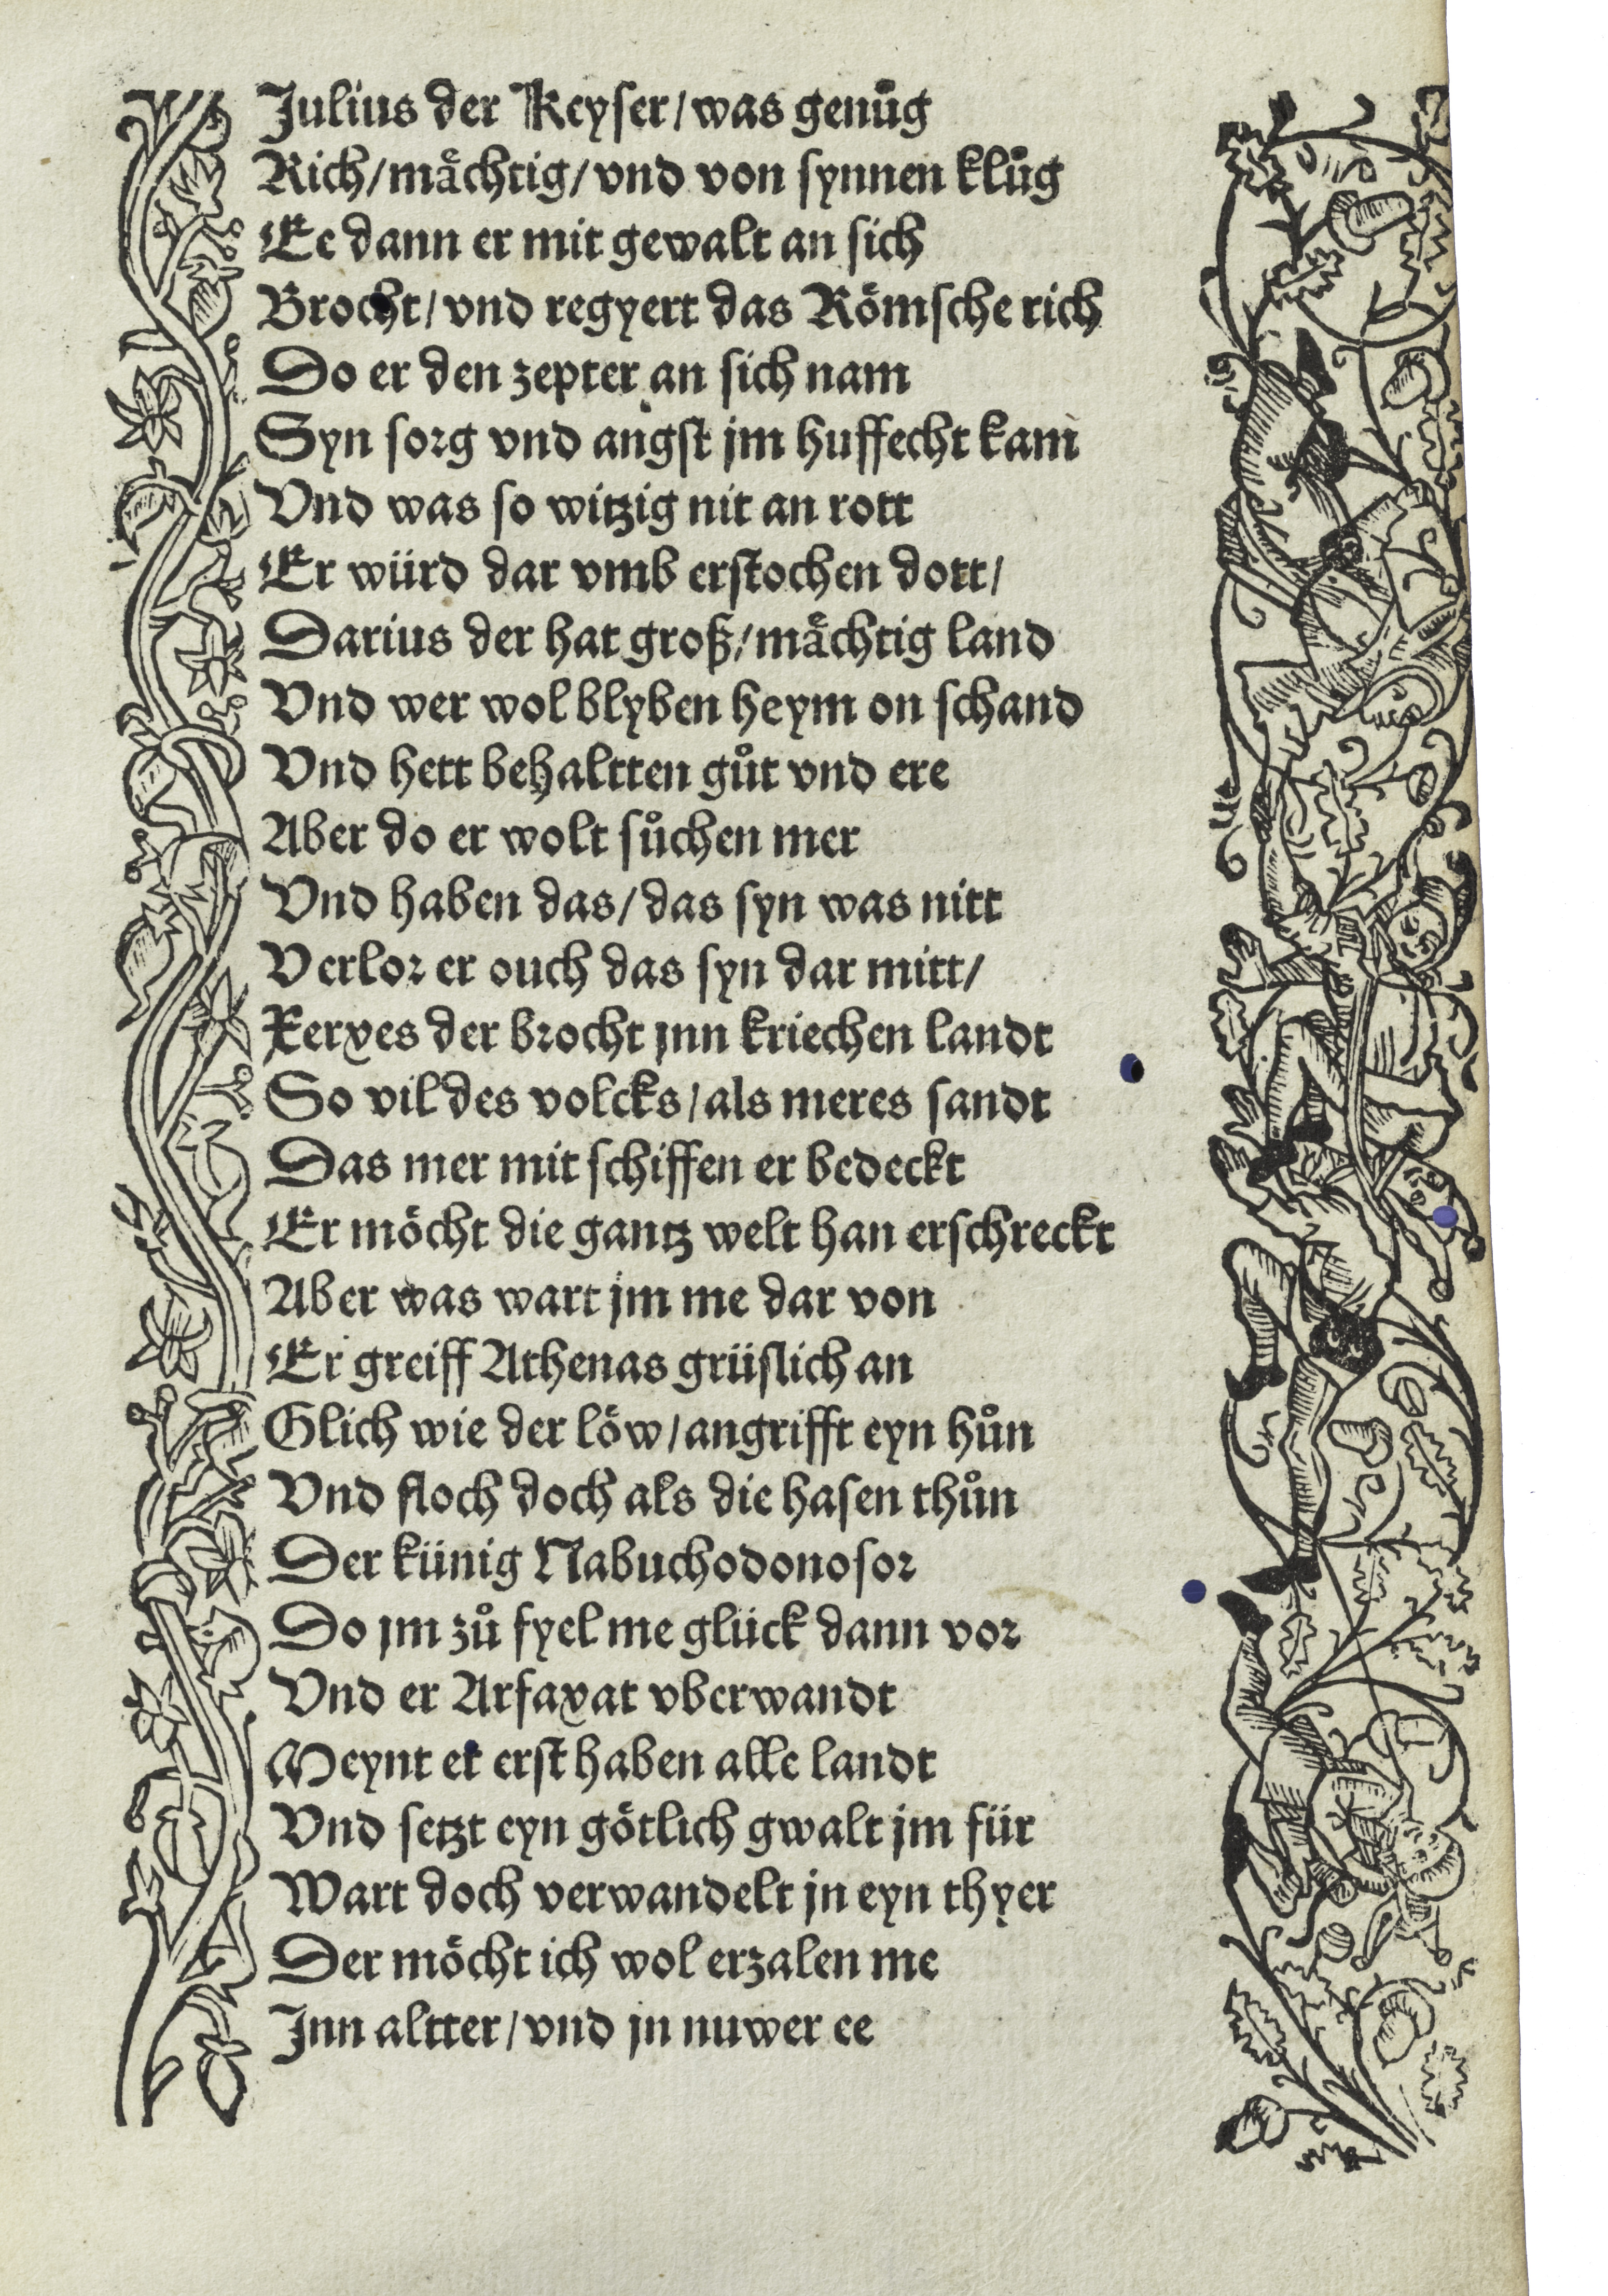 Julius der Keyser/was genuͦg
Rich/maͤchtig/vnd von synnen kluͦg
Ee dann er mit gewalt an sich
Brocht/vnd regyert das Roͤmsche rich
Do er den zepter an sich nam
Syn sorg vnd angst jm huffecht kam
Vnd was so witzig nit an rott
Er würd dar vmb erstochen dott/
Darius der hat groß/maͤchtig land
Vnd wer wol blyben heym on schand
Vnd hett behaltten guͦt vnd ere
Aber do er wolt suͦchen mer
Vnd haben das/das syn was nitt
Verlor er ouch das syn dar mitt/
Xerxes der brocht jnn kriechen landt
So vil des volcks/als meres sandt
Das mer mit schiffen er bedeckt
Er moͤcht die gantz welt han erschreckt
Aber was wart jm me dar von
Er greiff Athenas grüslich an
Glich wie der loͤw/angrifft eyn huͦn
Vnd floch doch als die hasen thuͦn
Der künig Nabuchodonosor
Do jm zuͦ fyel me glück dann vor
Vnd er Arfaxat vberwandt
Meynt er erst haben alle landt
Vnd setzt eyn goͤtlich gwalt jm für
Wart doch verwandelt jn eyn thyer
Der moͤcht ich wol erzalen me
Jnn altter/vnd jn nuwer ee